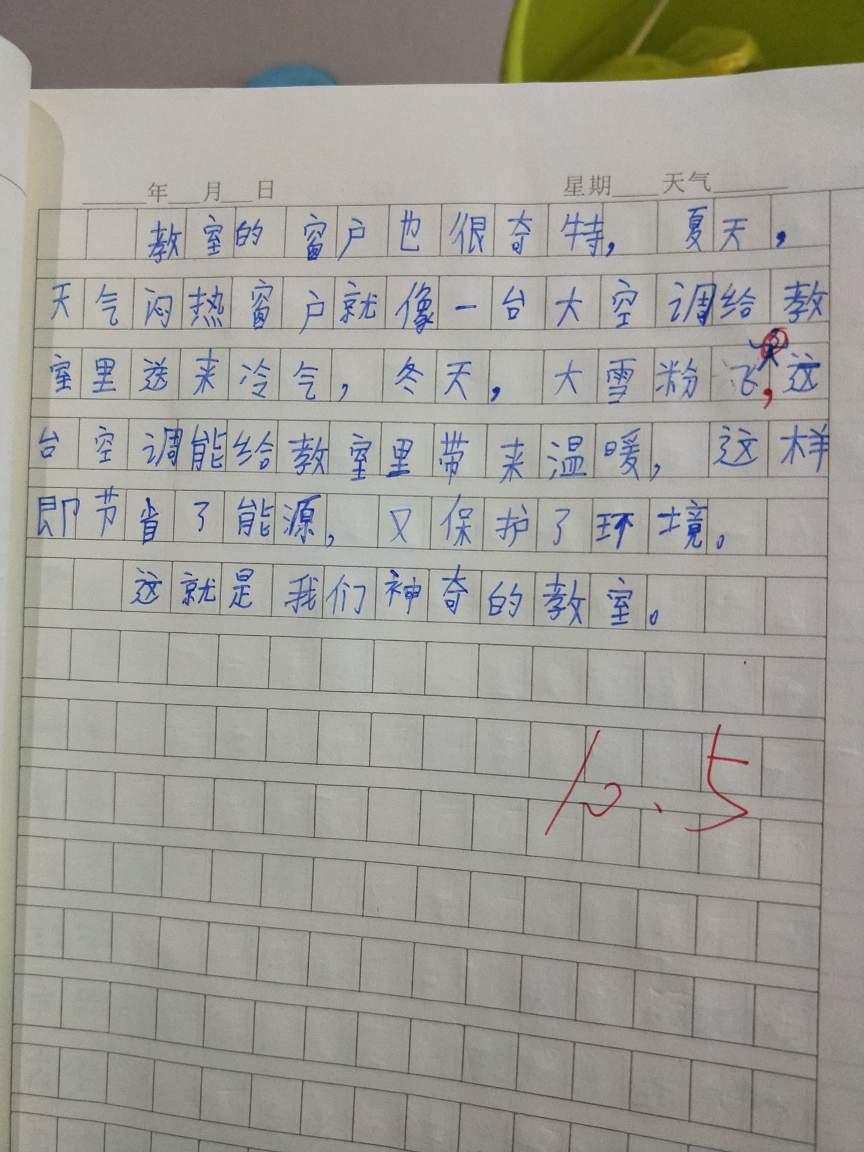 年 月 日 星期 天气
教室的窗户也很奇特, 夏天,
天气闷热窗户就像一台大空调给教
室里送来冷气, 冬天, 大雪粉飞,这
台空调能给教室里带来温暖, 这样
即节省了能源, 又保护了环境。
这就是我们神奇的教室。
10.5